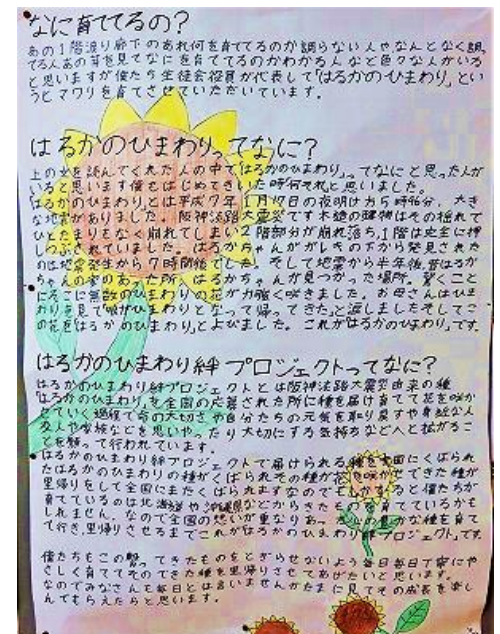 なに育ててるの?
あの1階渡り廊下のあれ何を育ててるのか調らない人やなんとなく調
てる人あの芽を見てなにを育ててるのかわかる人など色々な人がいる
と思いますが僕たち生徒会役員が代表して「はるかのひまわり」とい
うヒマワリを育てさせていただいています。
はるかのひまわりってなに?
上の文を読んでくれた人の中で「はるかのひまわり」ってなにと思った人が
いると思います僕もはじめてきいた時何それと思いました。
「はるかのひまわり」とは平成7年1月17日の夜明け方5時46分、大き
な地震がありました。阪神淡路大震災です木造の建物はその揺れで
ひとたまりもなく崩れてしまい2階部分が崩れ落ち、1階は完全に押
しつぶされていました。はるかちゃんががれきの下から発見された
のは地震発生から7時間後でした。そして地震から半年後、昔はるか
ちゃんの家のあった所、はるかちゃんが見つかった場所。驚くこと
にそこに無数のひまわりの花が力強く咲きました。お母さんはひま
わりを見て「娘がひまわりとなって帰ってきた」と涙しましたそしてこ
の花を「はるかのひまわり」とよびました。これが「はるかのひまわり」です。
はるかのひまわり絆プロジェクトってなに?
はるかのひまわり絆プロジェクトとは阪神淡路大震災由来の種
「はるかのひまわり」を全国の応募された所に種を届け育てて花を咲か
せていく過程で命の大切さや自分たちの元気を取り戻すや身近な人
友人や家族などを思いやったり大切にする気持ちなど人へと拡がるこ
とを願って行われています。
はるかのひまわり絆プロジェクトで届けられる種を全国にくばられ
たはるかのひまわりの種がくばられその種が花を咲かせできた種が
里帰りをして全国にまたくばられますなのでもしかすると僕たちが
育てているのは北海道や沖縄県などからきたものを育てているかも
しれません。なので全国の想いが重なりあった
て行き、里帰りさせるまでこれがはるかのひまわり絆プロジェクト」です。
僕たちもこの繋ってきたものをとぎらせないよう毎日毎日丁寧にや
さしく育ててそのできた種を里帰りさせてあげたいと思います。
なのでみなさんも毎日とは言いませんがたまに見てその成長を楽し
んでもらえたらと思います。